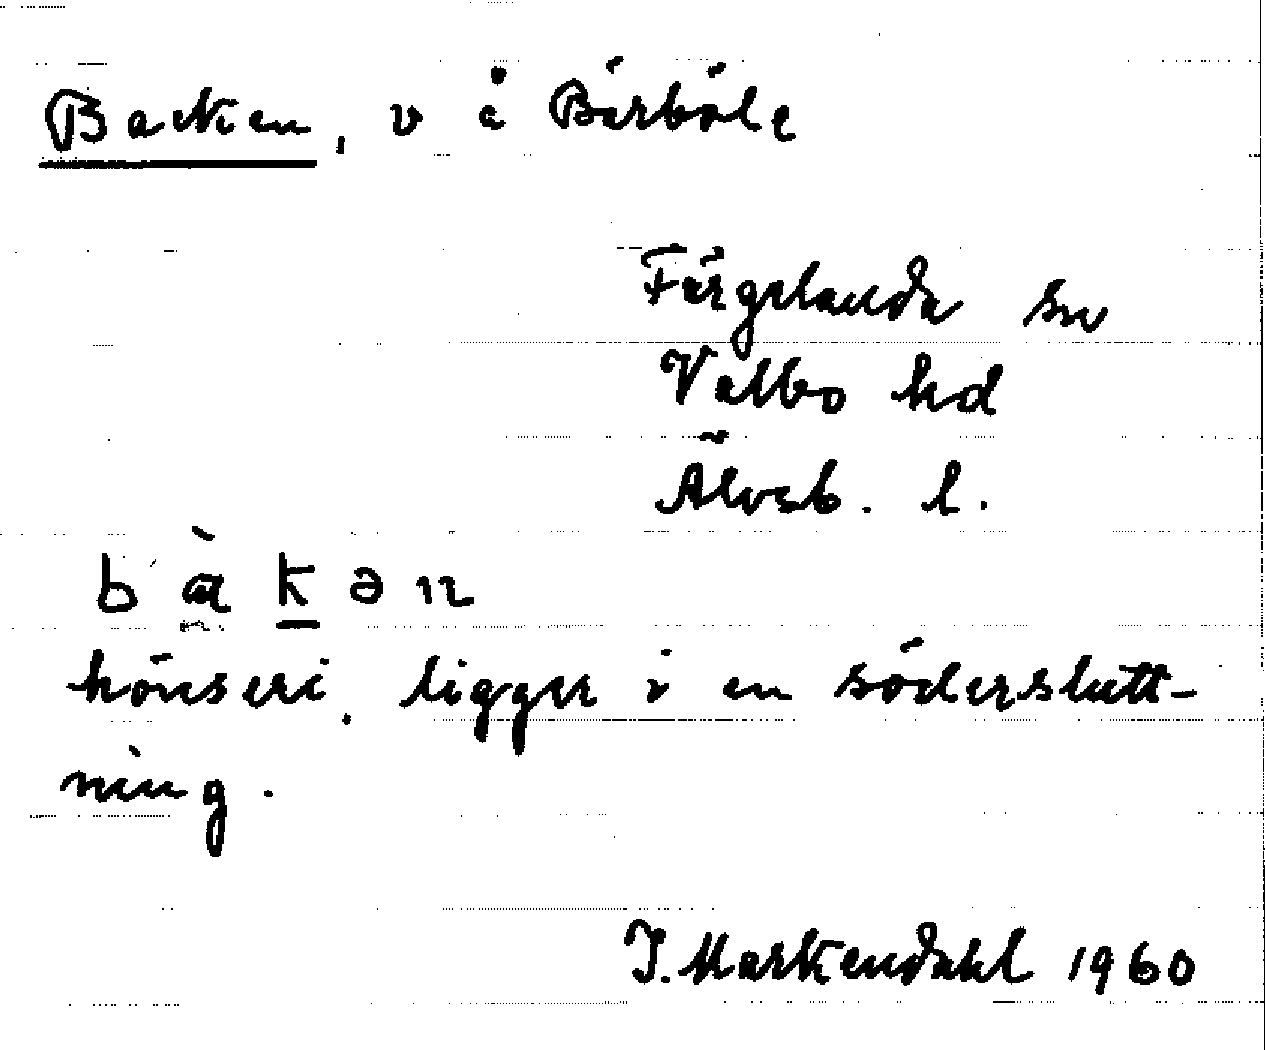 Backen, v å Bärböle
Färgelanda sn
Valbo hd
Älvsb. l.
b à k ə n
hönseri, ligger i en söderslutt-
ning.
I. Markendahl 1960